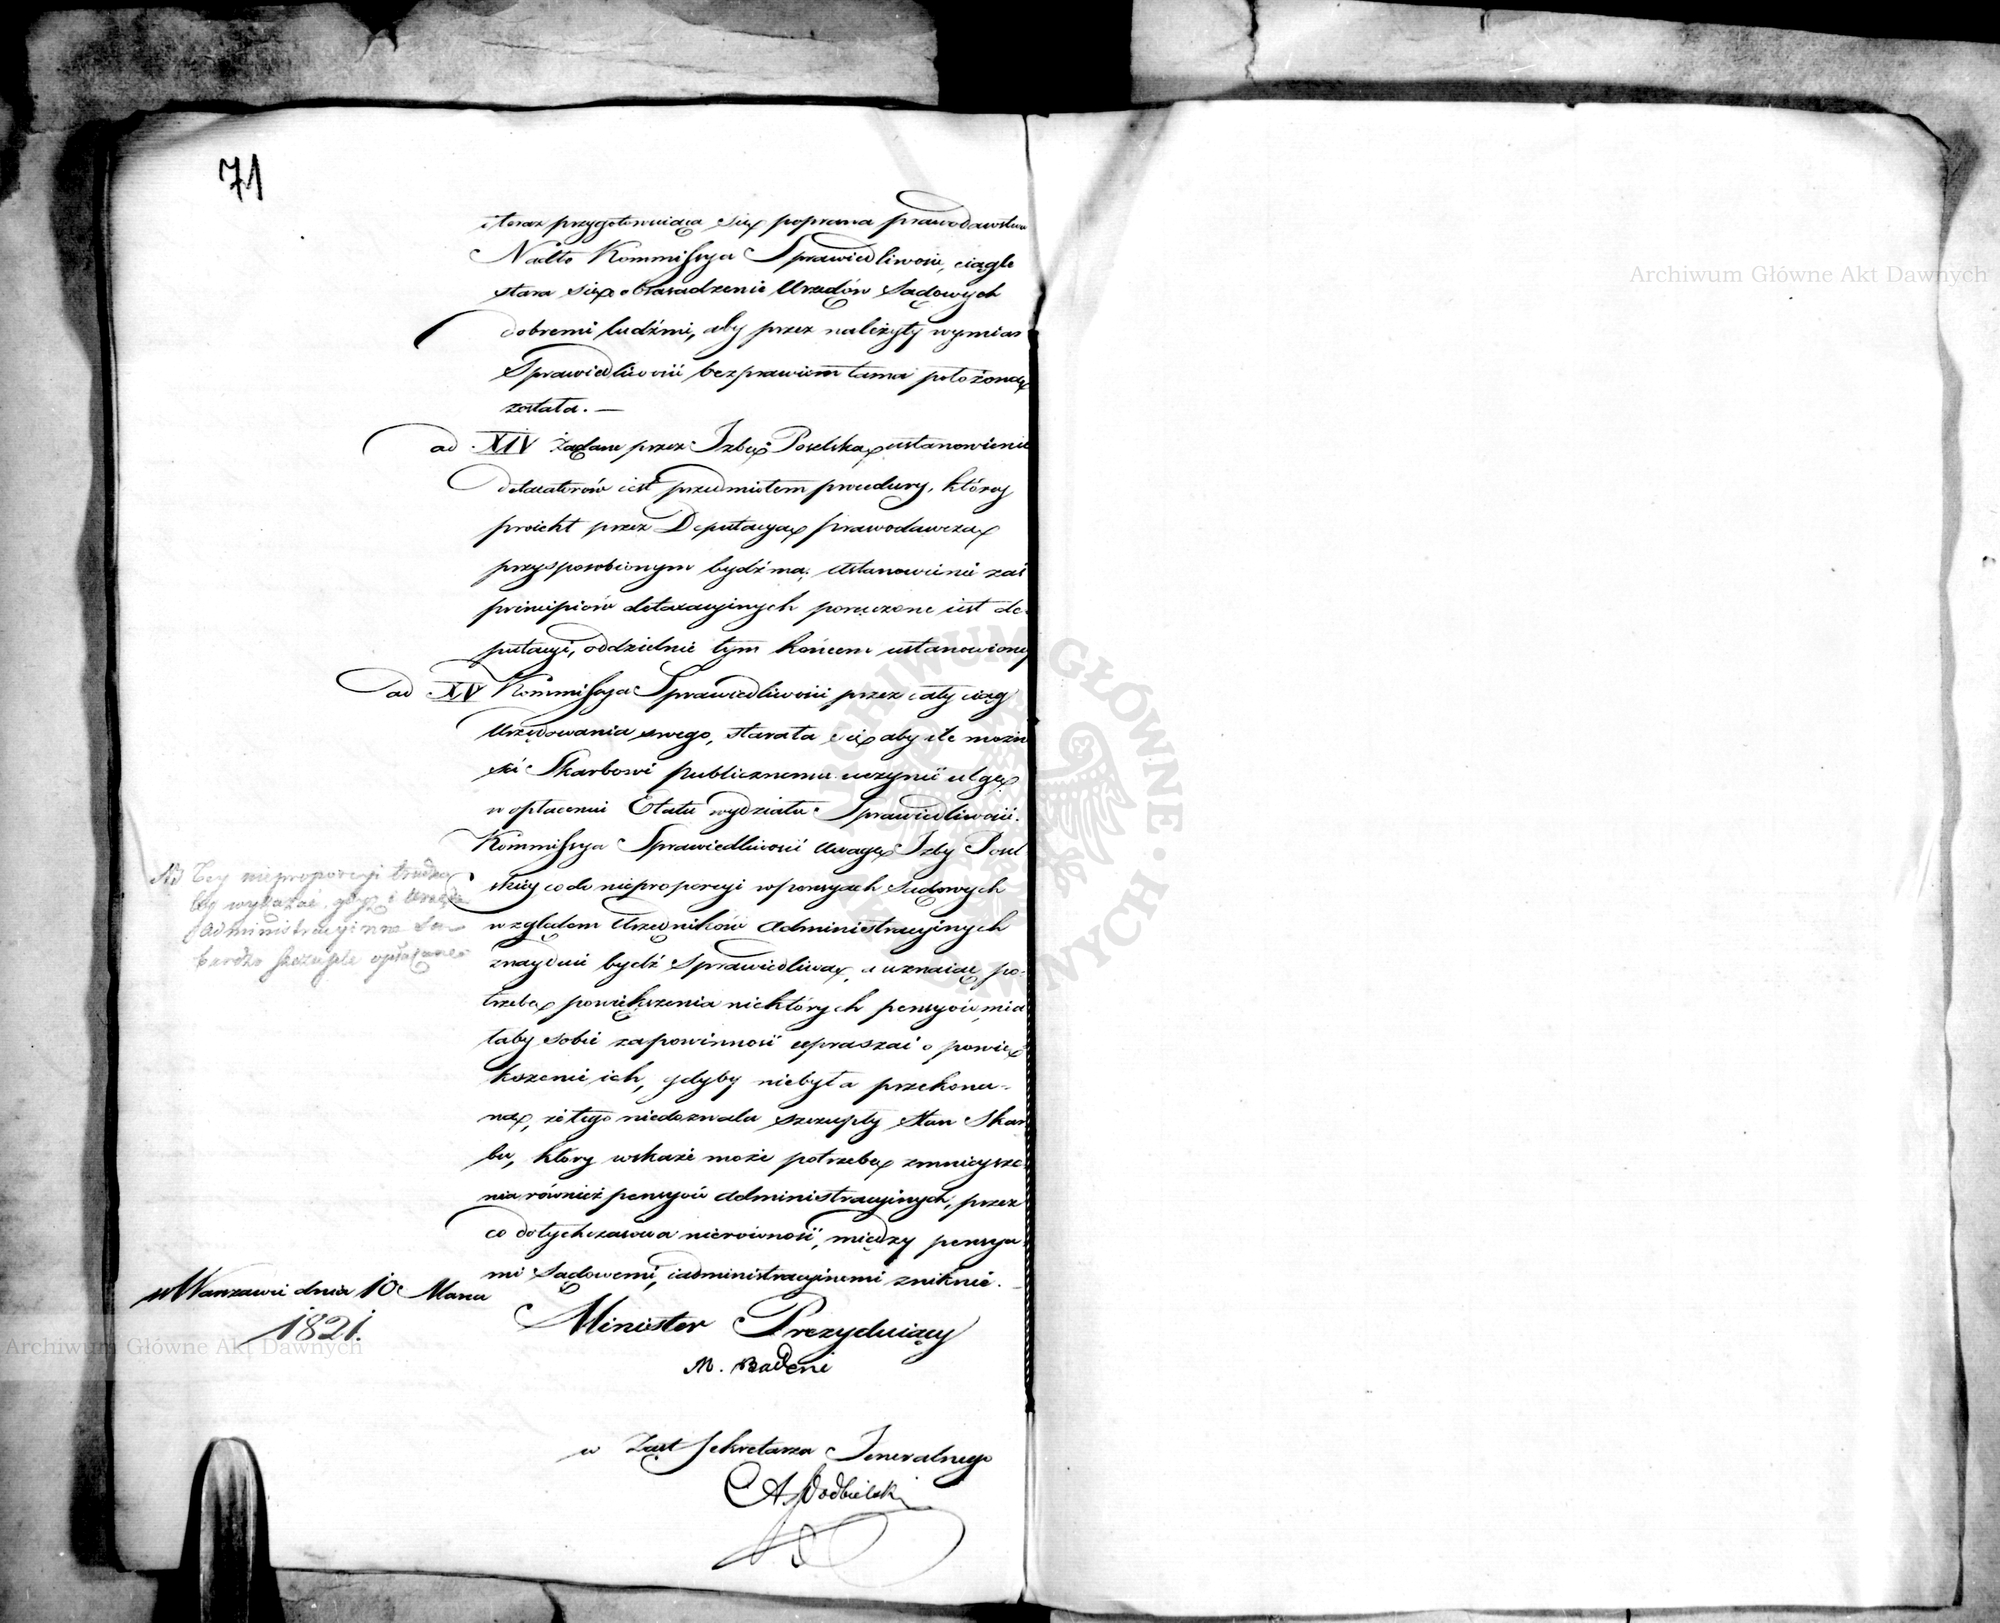 71
i teraz przygotowuiąca się poprawa prawodawstwa
Nadto Kommissya Sprawiedliwości, ciągle
stara się o obsadzenie Urzędów Sądowych
dobremi ludźmi, aby przez należyty wymiar
Sprawiedliwości bezprawiom tama położoną
została. —
ad XIV Żądane przez Izbę Poselską ustanowienie
detaxatorów iest przedmiotem procedury, którey
proiekt przez Deputacyą prawodawczą
przysposobionym bydź ma; ustanowienie zaś
principiów detaxacyinych poruczone iest de-
putacyi, oddzielnie tym końcem ustanowioney
ad XV Kommissya Sprawiedliwości przez cały ciąg
Urzędowania swego, starała się aby ile możno
ści Skarbowi publicznemu uczynić ulgę
w opłaceniu Etatu wydziału Sprawiedliwości.
Kommissya Sprawiedliwości uwagę Izby Posel
skiey co do nieproporcyi w pensyach Sądowych
względem Urzędników Administracyinych
znayduie bydź Sprawiedliwą, a uznaiąc po-
trzebę powiększenia niektórych pensyów, mia
łaby sobie za powinność upraszać o powię
kszenie ich, gdyby niebyła przekona-
ną, że tego niedozwala szczupły stan Skar
bu, który wskaże może potrzebę zmnieysze-
nia również pensyów administracyinych, przez
co dotychczasowa nierówność, między pensya-
mi Sądowemi, i administracyinemi zniknie.
NB Tey nieproporcyi trudno
by wykazać, gdyż i Urzęda
Administracyine są
bardzo szczupłe opłacane
w Warszawie dnia 10 Marca
1821.
Minister Prezyduiący
M. Badeni
w Zast Sekretarza Jeneralnego
A Podbielski
Archiwum Główne Akt Dawnych
Archiwum Główne Akt Dawnych
ARCHIWUM GŁÓWNE AKT DAWNYCH